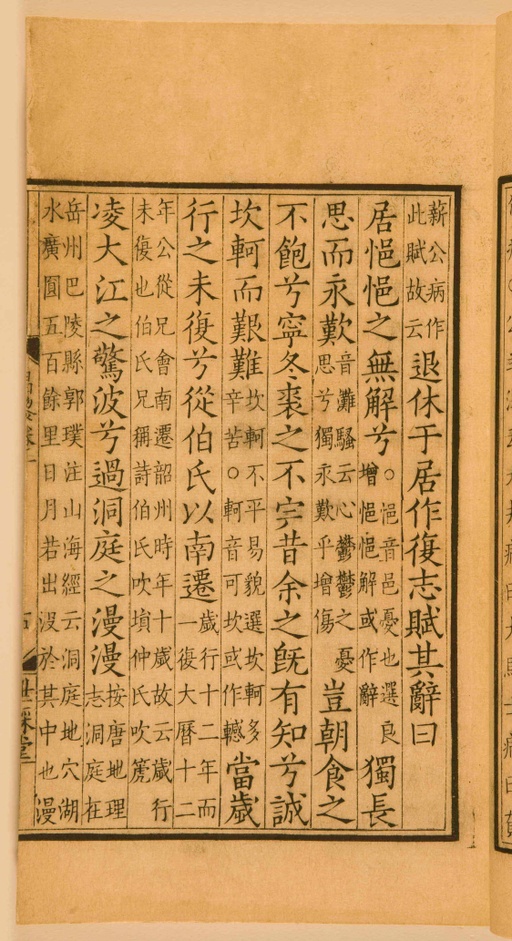 薪公病作
此賦故云
退休于居作復志賦其辭曰
居悒悒之無解兮
○悒音邑憂也選良
增悒悒解或作辭
獨長
思而永歎
音灘騷云心鬱鬱之憂
思兮獨永歎乎增傷
豈朝食之
不飽兮寧冬裘之不完昔余之旣有知兮誠
坎軻而艱難
坎軻不平易貌選坎軻多
辛苦○軻音可坎或作轗
當歲
行之未復兮從伯氏以南遷
歲行十二年而
一復大曆十二
年公從兄會南遷韶州時年十歲故云歲行
未復也伯氏兄稱詩伯氏吹塤仲氏吹篪
凌大江之驚波兮過洞庭之漫漫
按唐地理
志洞庭在
岳州巴陵縣郭璞注山海經云洞庭地穴湖
水廣圓五百餘里日月若出沒於其中也漫